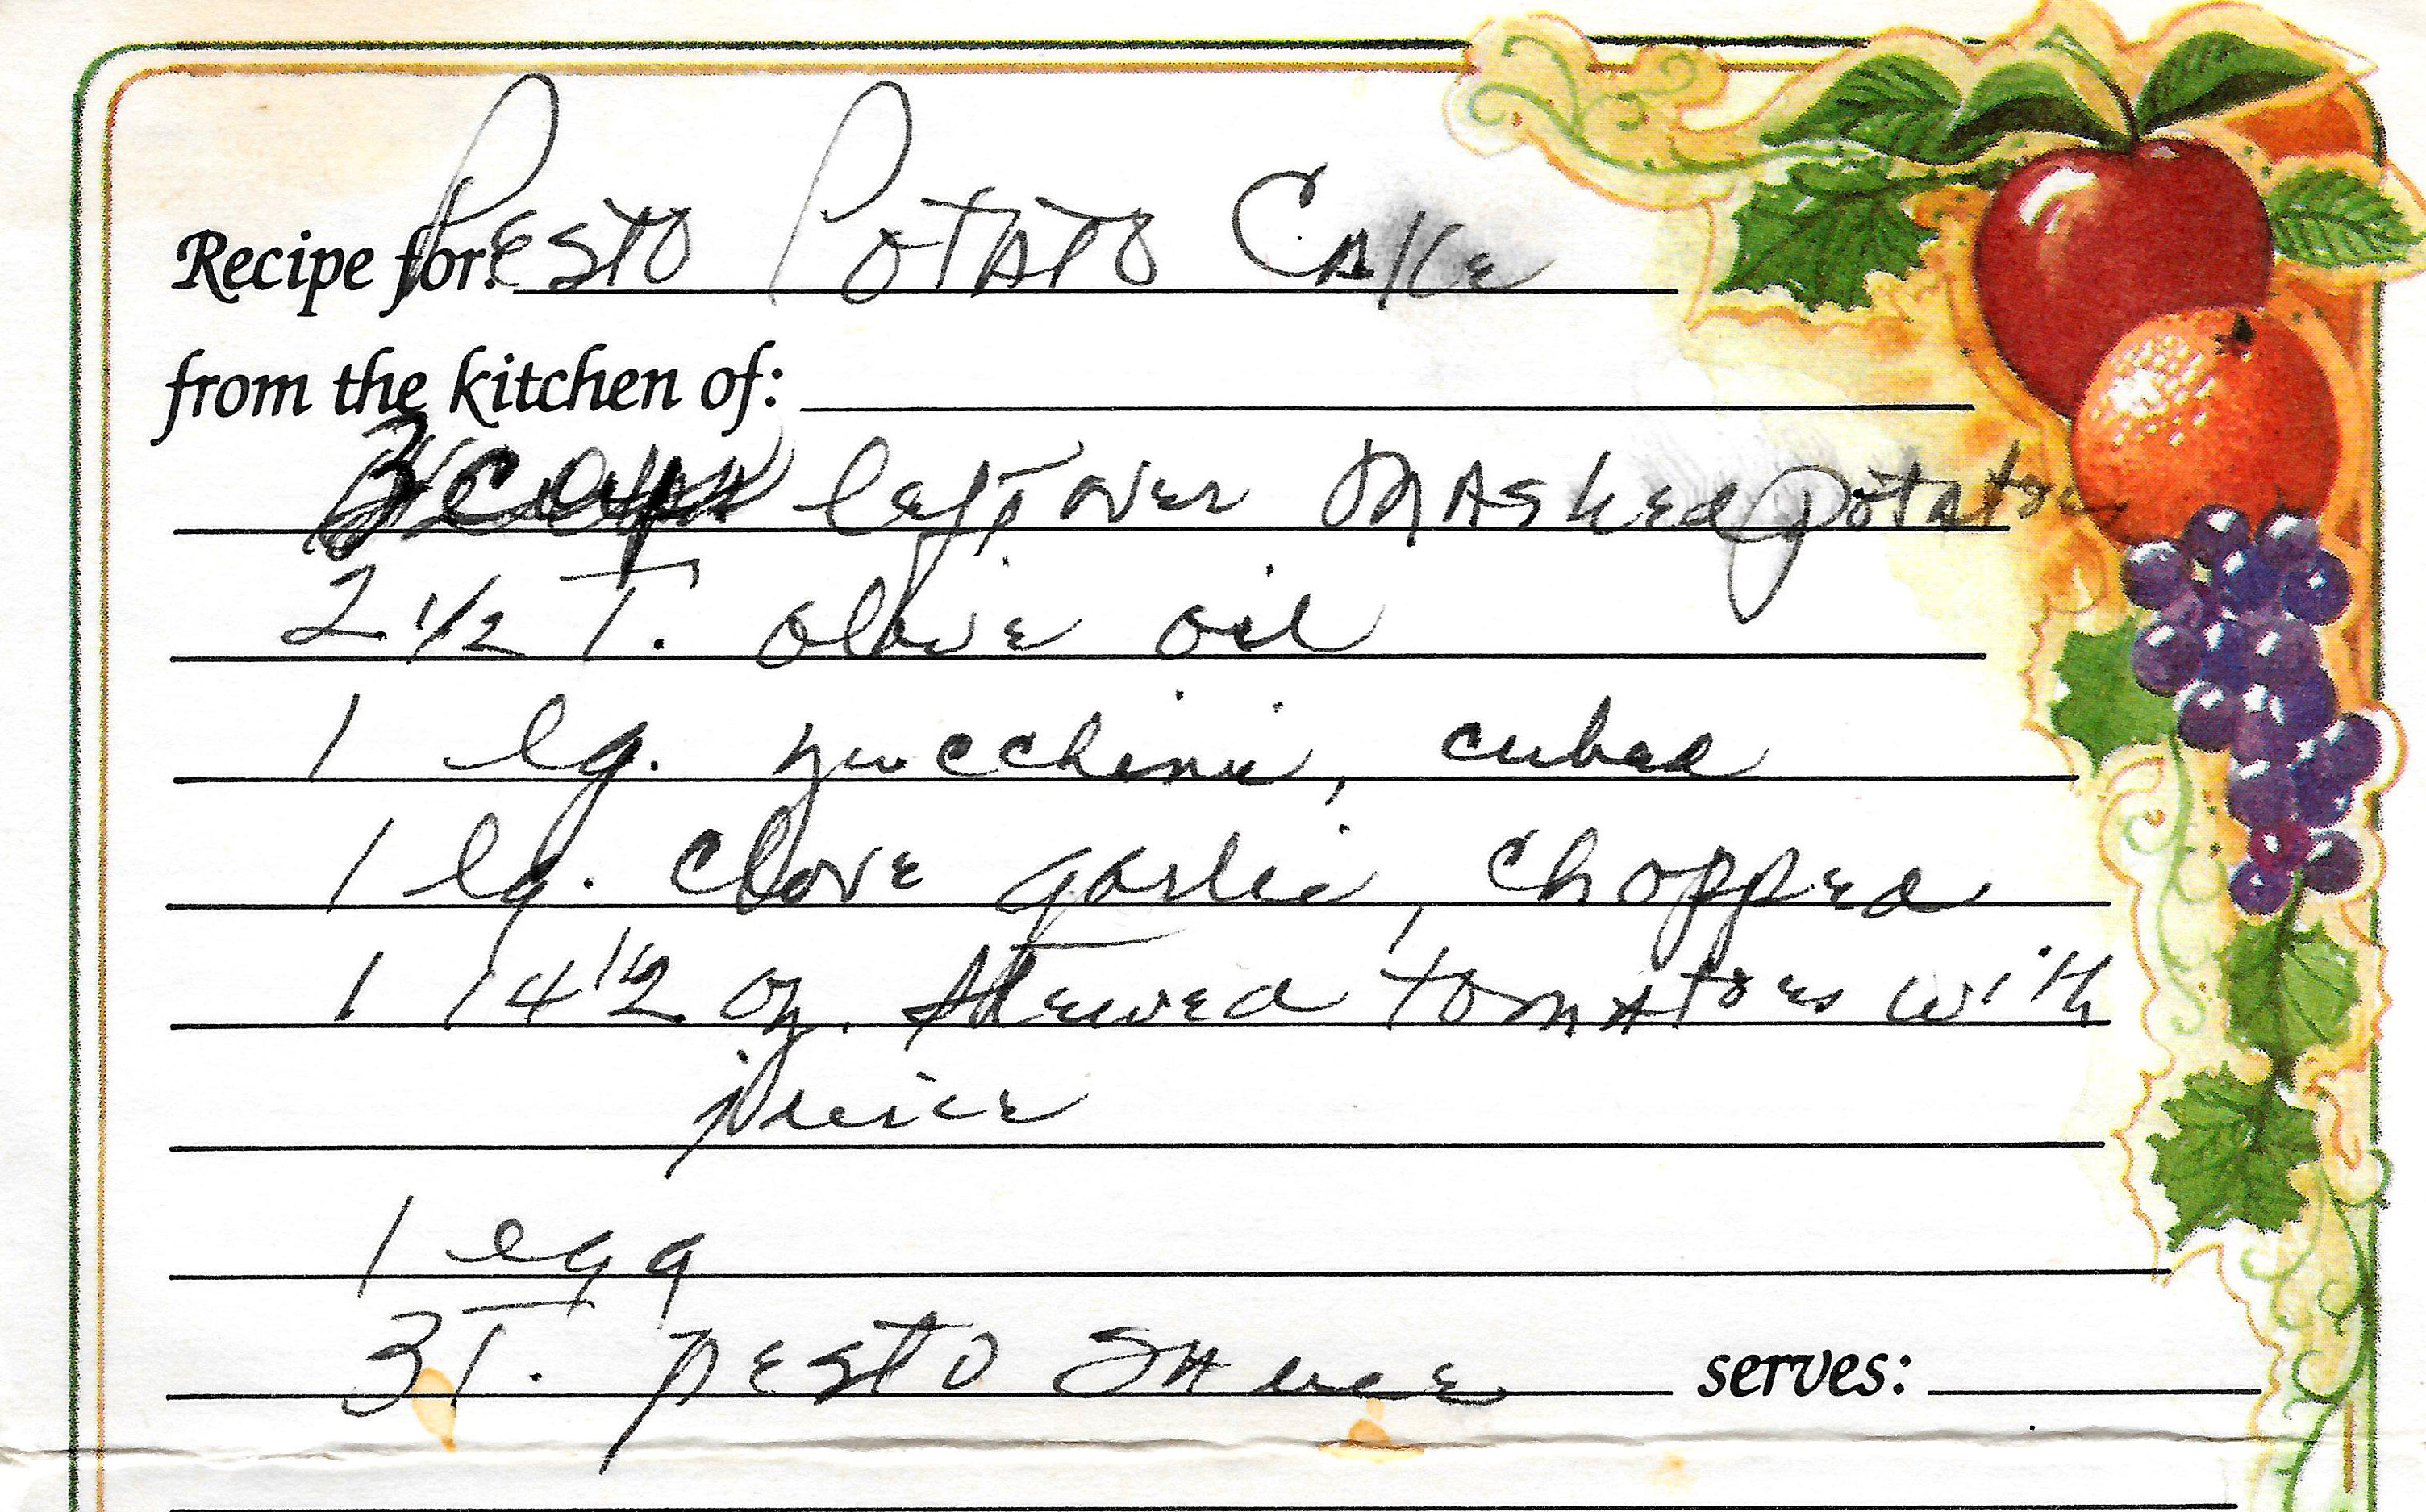 Recipe for: Pesto Potato Cake
from the kitchen of:
3 cups leftover mashed potatoes
2 1/2 T. olive oil
1 lg. zucchini, cubed
1 lg. clove garlic, chopped
1 14 1/2 oz. stewed tomatoes with
juice
1 egg
3 T. pesto sauce
serves: